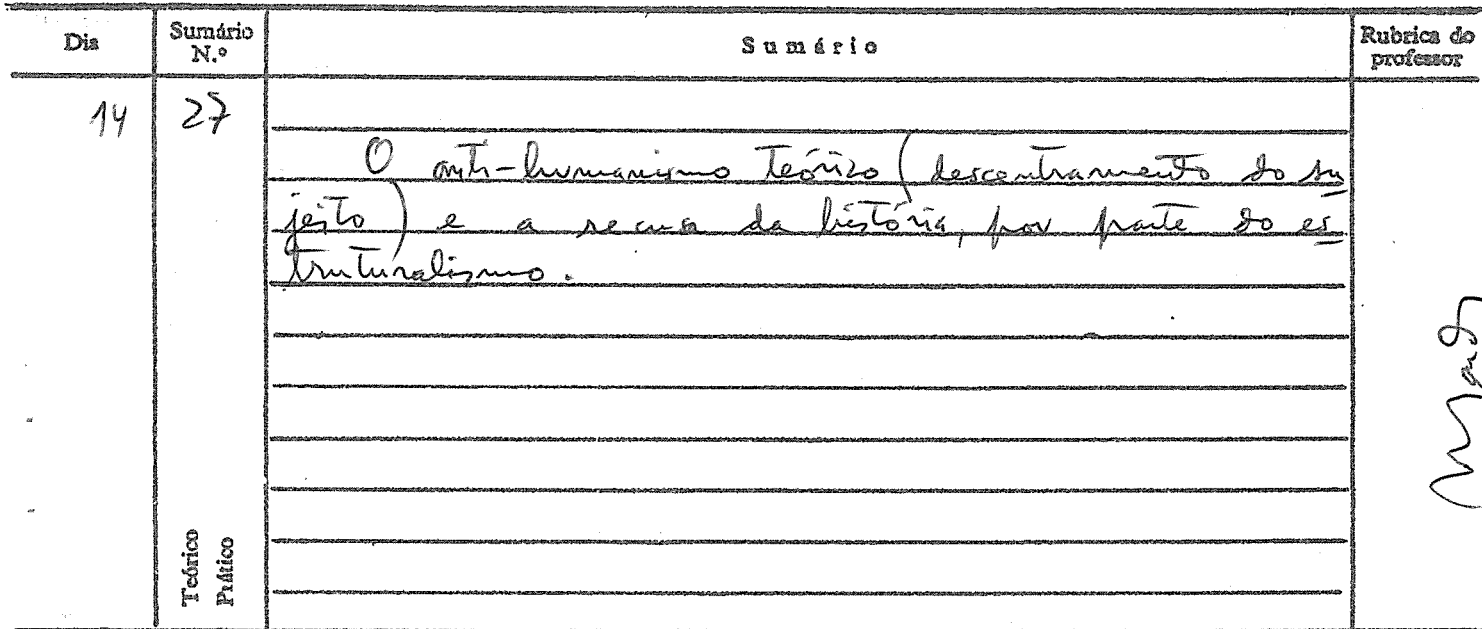 Dia Sumário N.º Sumário Rubrica do professor
14 27
O anti-humanismo teórico (descentramento do su
jeito) e a recusa da história, por parte do es
truturalismo.
Teórico
Prático